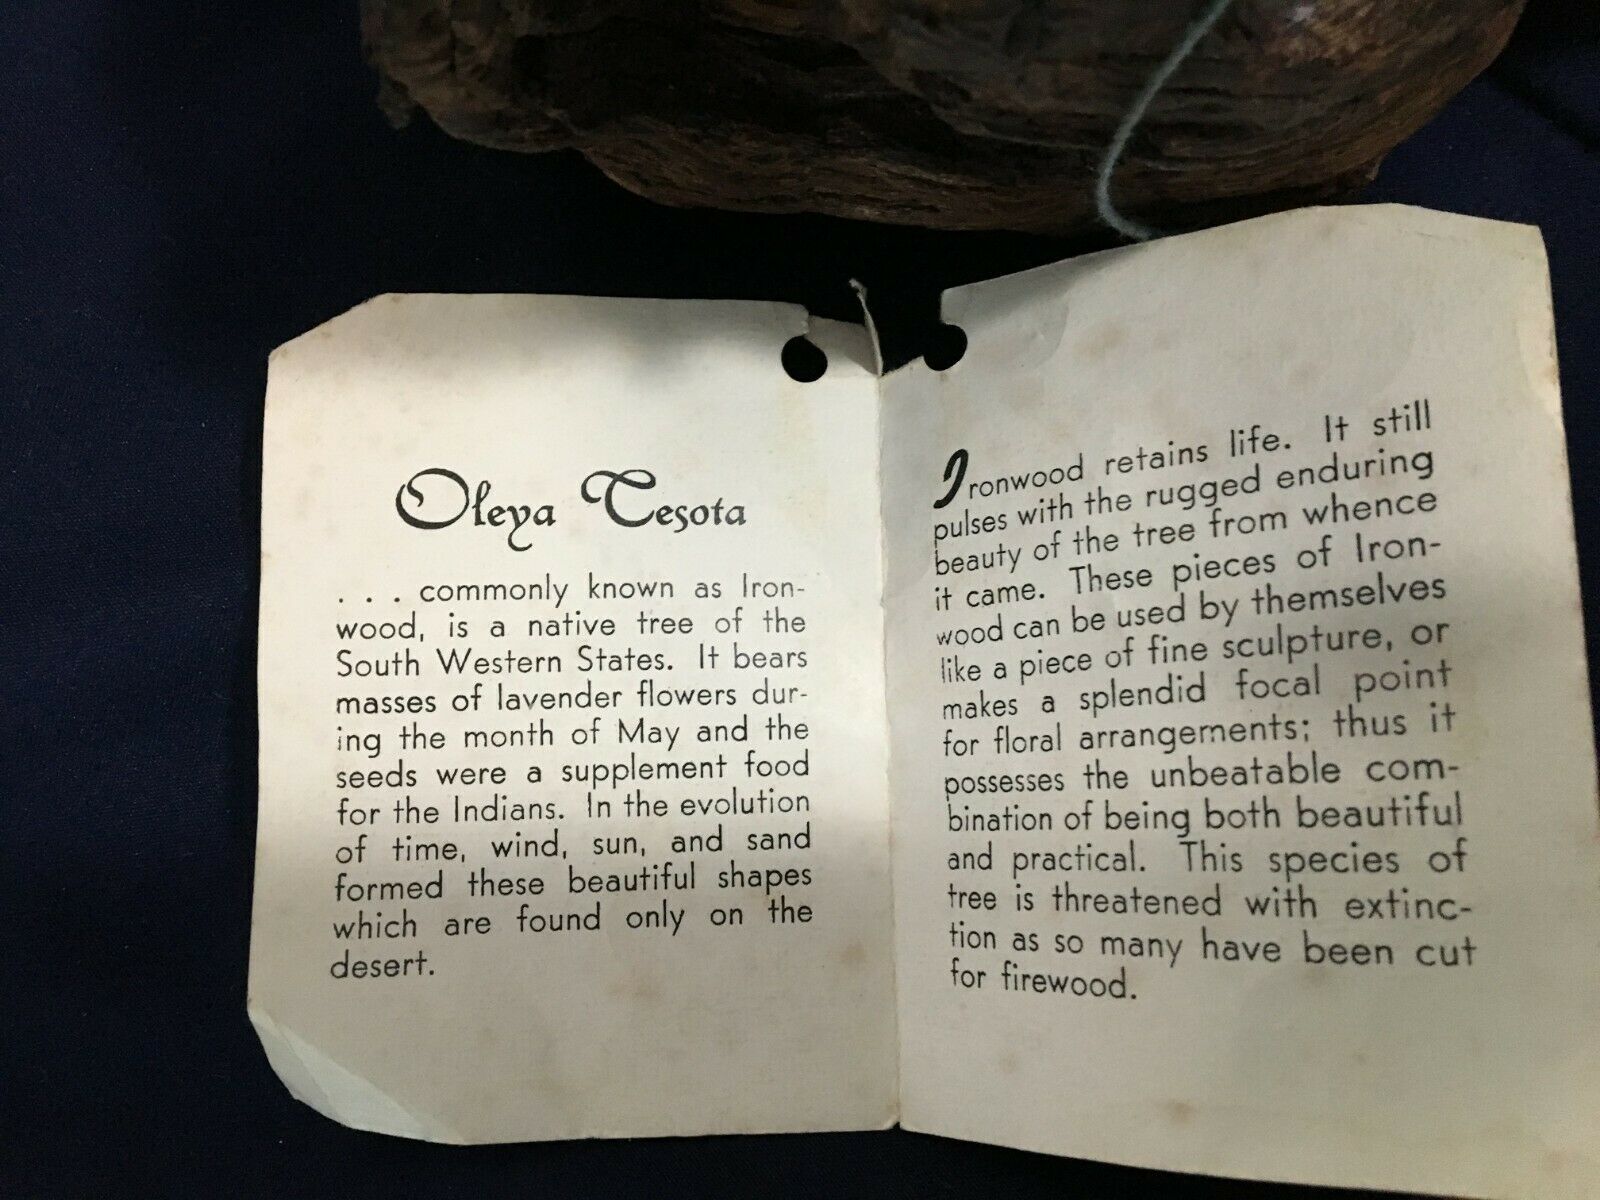 Oleya Tesota
. . . commonly known as Iron-
wood, is a native tree of the
South Western States. It bears
masses of lavender flowers dur-
ing the month of May and the
seeds were a supplement food
for the Indians. In the evolution
of time, wind, sun, and sand
formed these beautiful shapes
which are found only on the
desert.
Ironwood retains life. It still
pulses with the rugged enduring
beauty of the tree from whence
it came. These pieces of Iron-
wood can be used by themselves
like a piece of fine sculpture, or
makes a splendid focal point
for floral arrangements; thus it
possesses the unbeatable com-
bination of being both beautiful
and practical. This species of
tree is threatened with extinc-
tion as so many have been cut
for firewood.